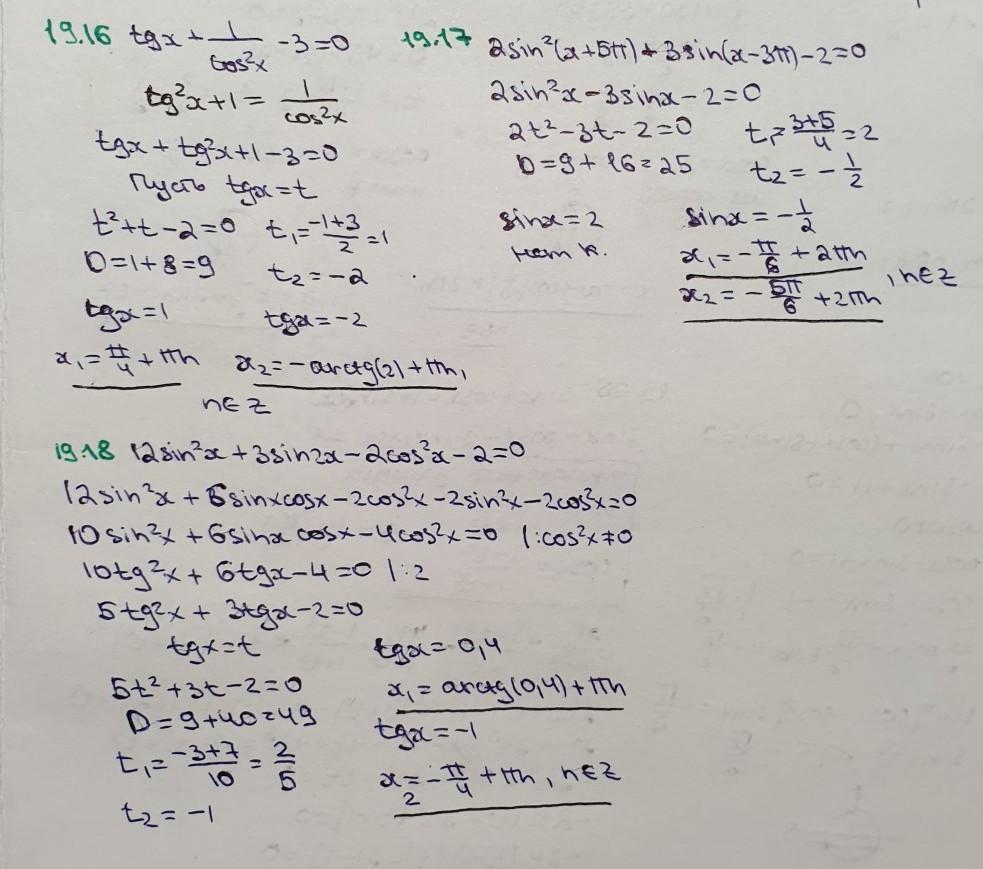 19.16 tgx + 1/cos²x - 3 = 0
tg²x + 1 = 1/cos²x
tgx + tg²x + 1 - 3 = 0
Пусть tgx = t
t² + t - 2 = 0 t₁ = (-1+3)/2 = 1
D = 1 + 8 = 9 t₂ = -2
tgx = 1 tgx = -2
x₁ = π/4 + πn x₂ = -arctg(2) + πn,
n ∈ Z
19.17 2sin²(x+5π) + 3sin(x-3π) - 2 = 0
2sin²x - 3sinx - 2 = 0
2t² - 3t - 2 = 0 t₁ = (3+5)/4 = 2
D = 9 + 16 = 25 t₂ = -1/2
sinx = 2 sinx = -1/2
нет к. x₁ = -π/6 + 2πn
x₂ = -5π/6 + 2πn , n ∈ Z
19.18 12sin²x + 3sin2x - 2cos²x - 2 = 0
12sin²x + 6sinxcosx - 2cos²x - 2sin²x - 2cos²x = 0
10sin²x + 6sinx cosx - 4cos²x = 0 | : cos²x ≠ 0
10tg²x + 6tgx - 4 = 0 | : 2
5tg²x + 3tgx - 2 = 0
tgx = t
5t² + 3t - 2 = 0
D = 9 + 40 = 49
t₁ = (-3+7)/10 = 2/5
t₂ = -1
tgx = 0,4
x₁ = arctg(0,4) + πn
tgx = -1
x₂ = -π/4 + πn , n ∈ Z